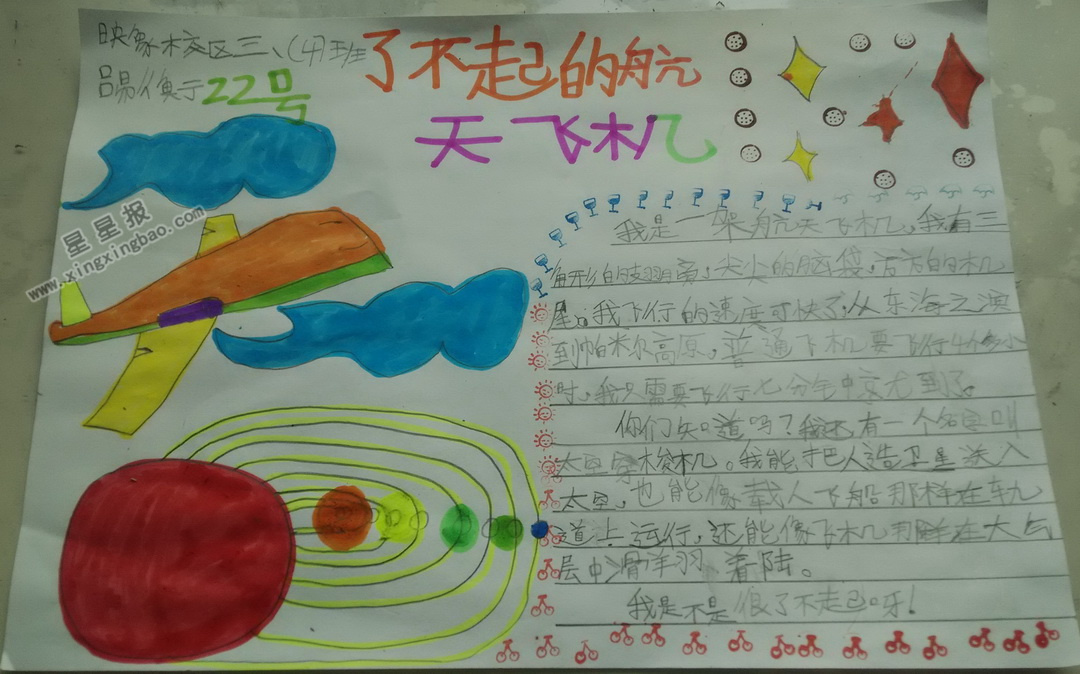 映象校区三、(4)班
易焕宁22号
了不起的航
天飞机
星星报
www.xingxingbao.com
我是一架航天飞机,我有三
角形的翅膀,尖尖的脑袋,方方的机
尾。我飞行的速度可快了,从东海之滨
到帕米尔高原,普通飞机要飞行4个多小
时,我只需要飞行七分钟就到了。
你们知道吗?我还有一个名字叫
太空穿梭机。我能把人造卫星送入
太空,也能像载人飞船那样在轨
道上运行,还能像飞机那样在大气
层中滑翔 着陆。
我是不是很了不起呀!